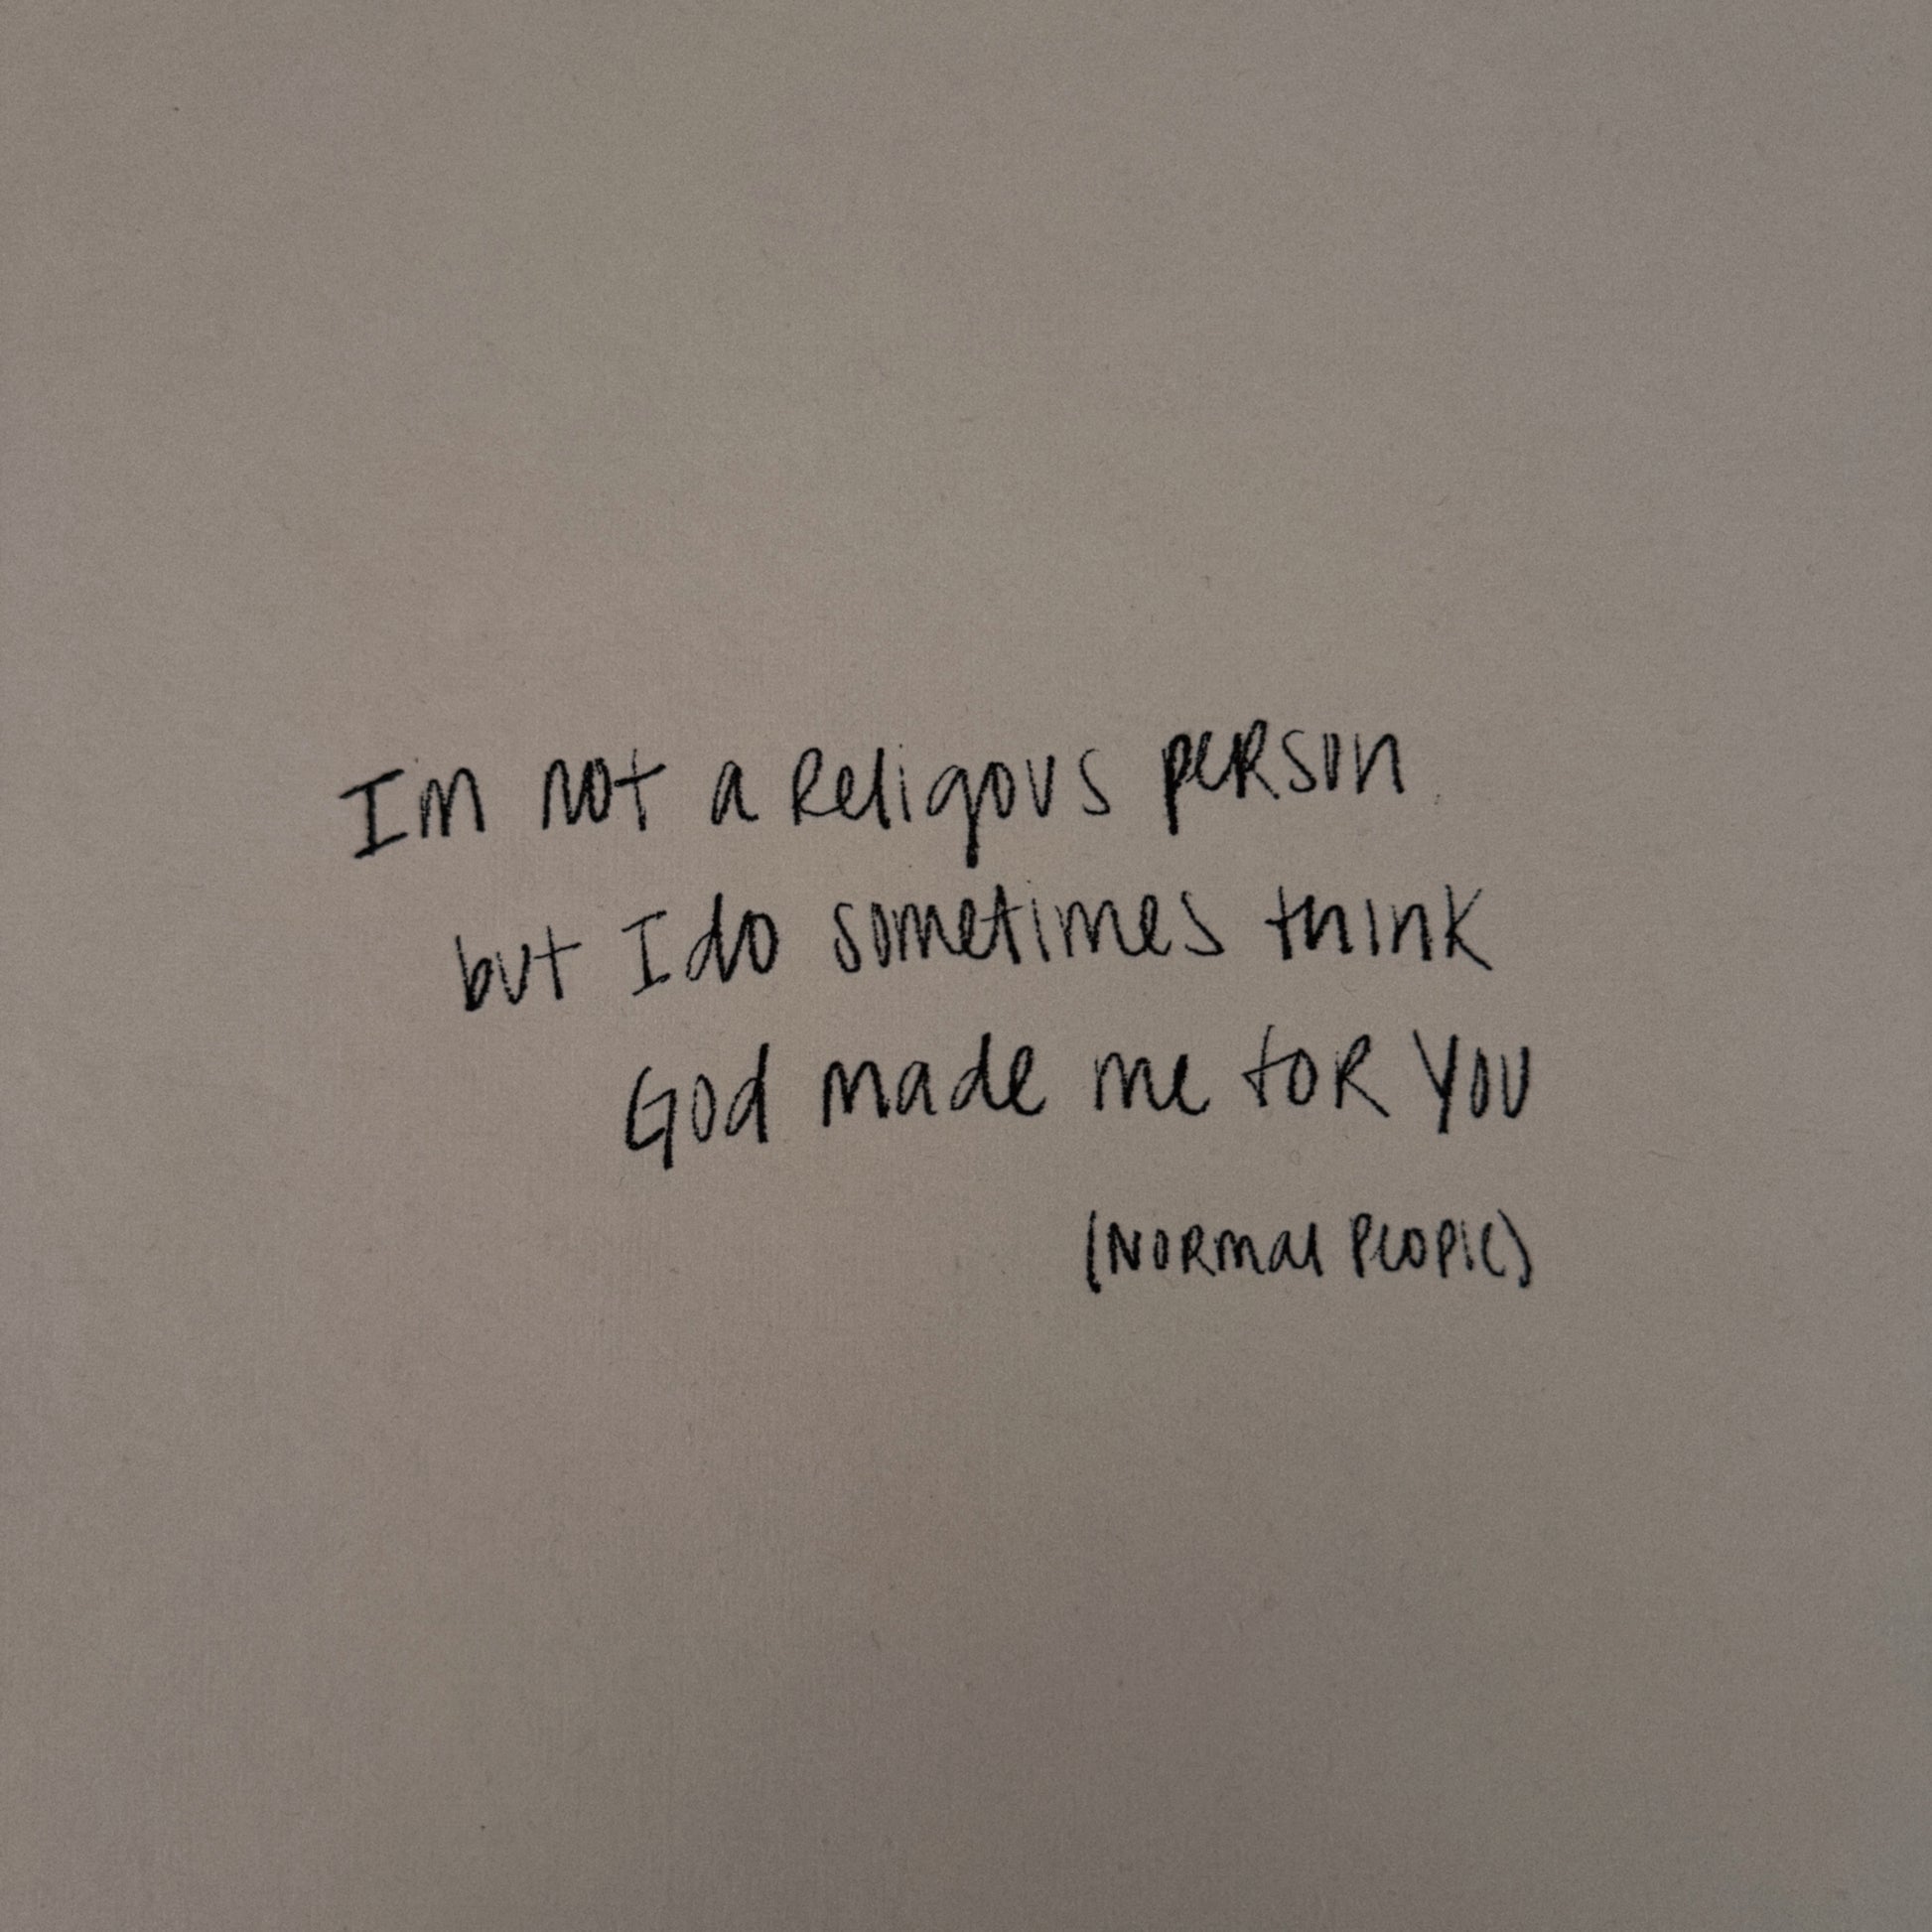 I'm not a Religous person
but I do sometimes think
God made me for you
(Normal People)